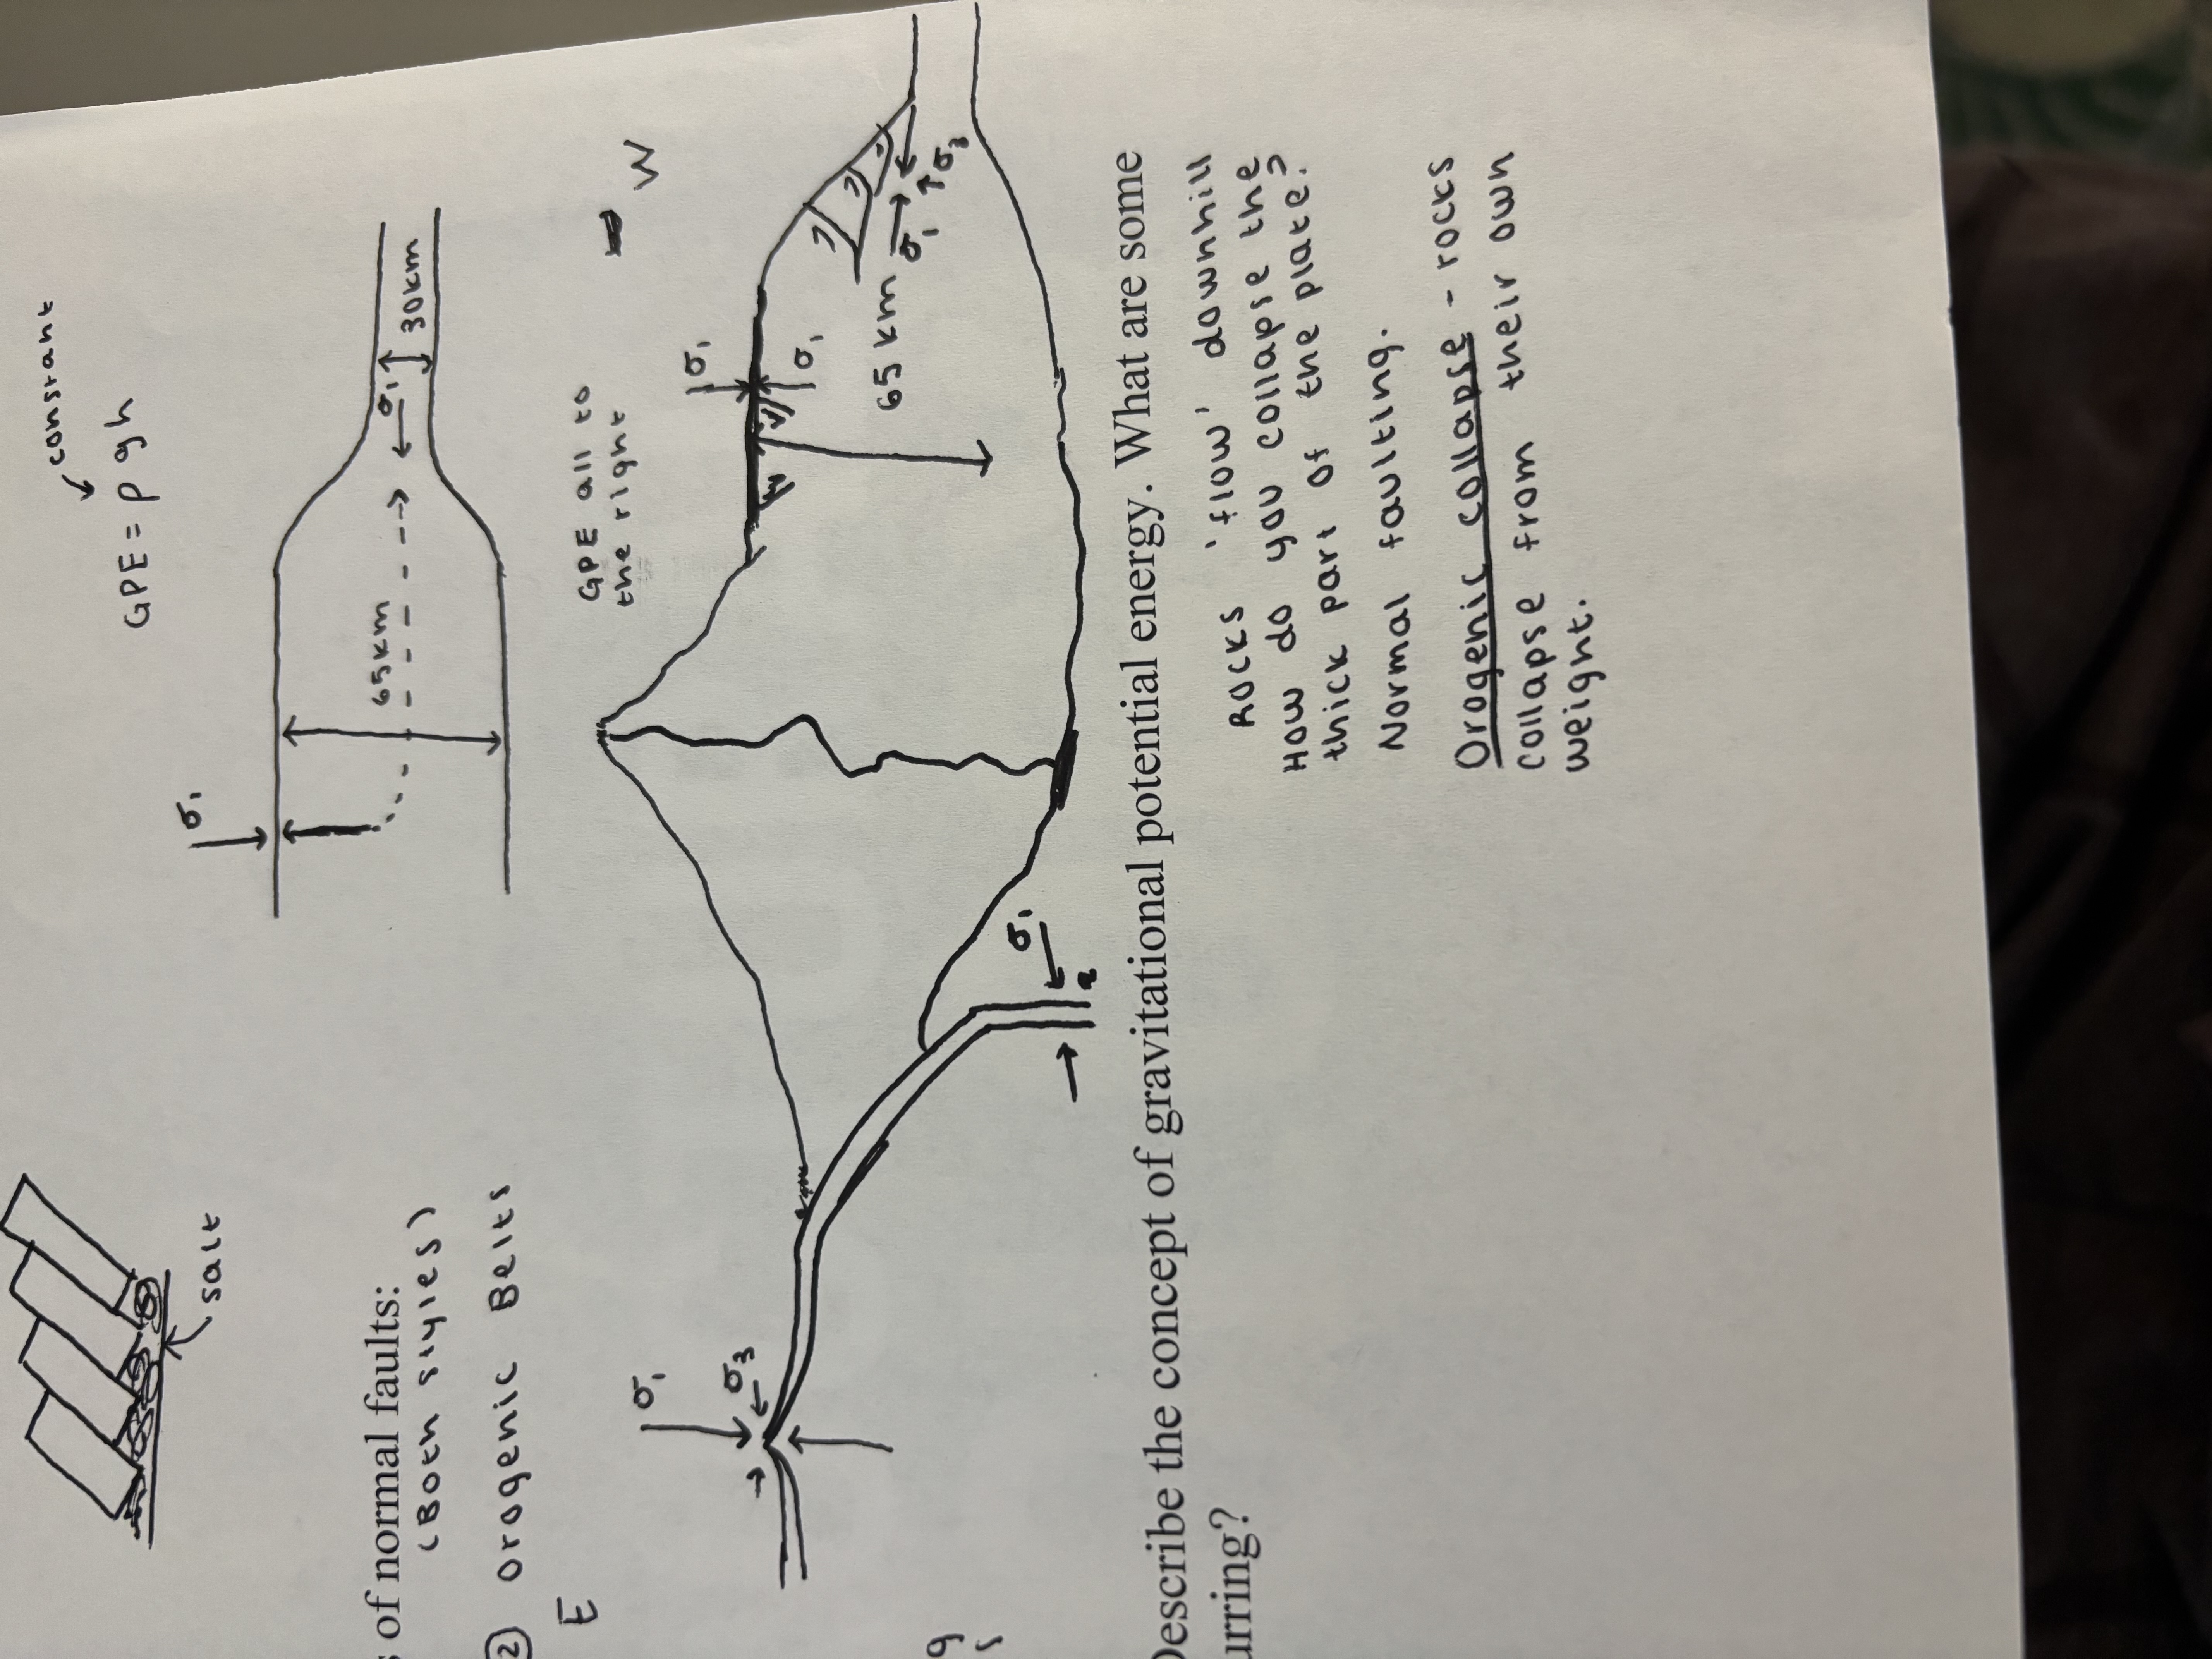 constant
GPE = ρ g h
σ₁
65km
σ₁
30km
salt
s of normal faults:
(Both styles)
② Orogenic Belts
E
W
GPE all to
the right
σ₁
σ₃
σ₁
σ₁
65 km
σ₁
σ₃
σ₁
g
Describe the concept of gravitational potential energy. What are some
urring?
Rocks 'flow' downhill
How do you collapse the
thick part of the plate?
Normal faulting.
Orogenic collapse - rocks
collapse from their own
weight.